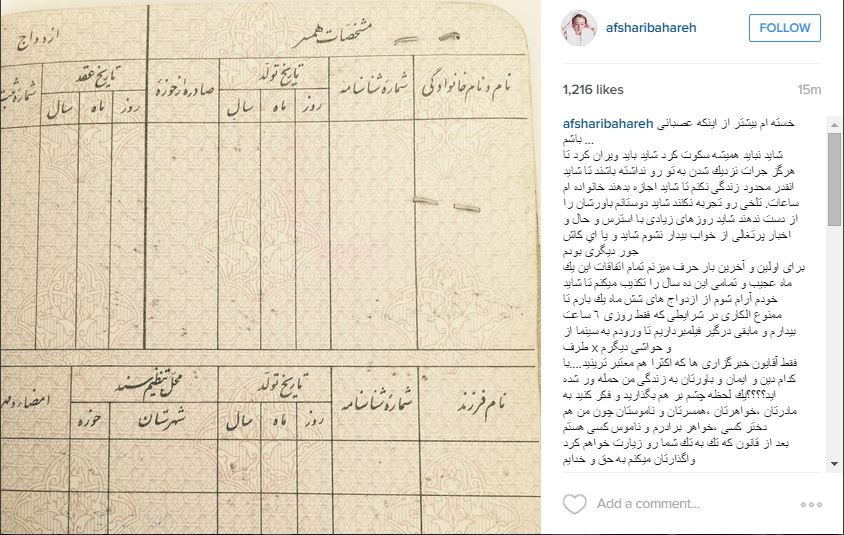 ازدواج
مشخصات همسر
نام و نام خانوادگی
شمارهٔ شناسنامه
تاریخ تولد
روز
ماه
سال
صادره از حوزهٔ
تاریخ عقد
روز
ماه
سال
نام فرزند
شمارهٔ شناسنامه
تاریخ تولد
روز
ماه
سال
محل تنظیم سند
شهرستان
حوزه
afsharibahareh
FOLLOW
1,216 likes
15m
afsharibahareh خسته ام بیشتر از اینکه عصبانی
باشم ...
شاید نباید همیشه سکوت کرد شاید باید ویران کرد تا
هرگز جرات نزدیك شدن به تو رو نداشته باشند تا شاید
انقدر محدود زندگی نکنم تا شاید اجازه بدهند خانواده ام
ساعات. تلخی رو تجربه نکنند شاید دوستانم باورشان را
از دست ندهند شاید روزهای زیادی با استرس و حال و
اخبار پرتغالی از خواب بیدار نشوم شاید و یا اي كاش
جور دیگری بودم
برای اولین و آخرین بار حرف میزنم تمام اتفاقات این یك
ماه عجیب و تمامی این ده سال را تکذیب میکنم تا شاید
خودم آرام شوم از ازدواج های شش ماه یك بارم تا
ممنوع الکاری در شرایطی که فقط روزی ٦ ساعت
بیدارم و مابقی درگیر فیلمبرداریم تا ورودم به سینما از
طرف x و حواشی دیگرم
فقط آقایون خبرگزاری ها که اکثرا هم معتبر ترینید....با
کدام دین و ایمان و باورتان به زندگی من حمله ور شده
اید؟؟؟؟یك لحظه چشم بر هم بگذارید و فکر کنید به
مادرتان ،خواهرتان ،همسرتان و ناموستان چون من هم
دختر کسی ،خواهر برادرم و ناموس کسی هستم
بعد از قانون که تك به تك شما رو زیارت خواهم کرد
واگذارتان میکنم به حق و خدایم
Add a comment...